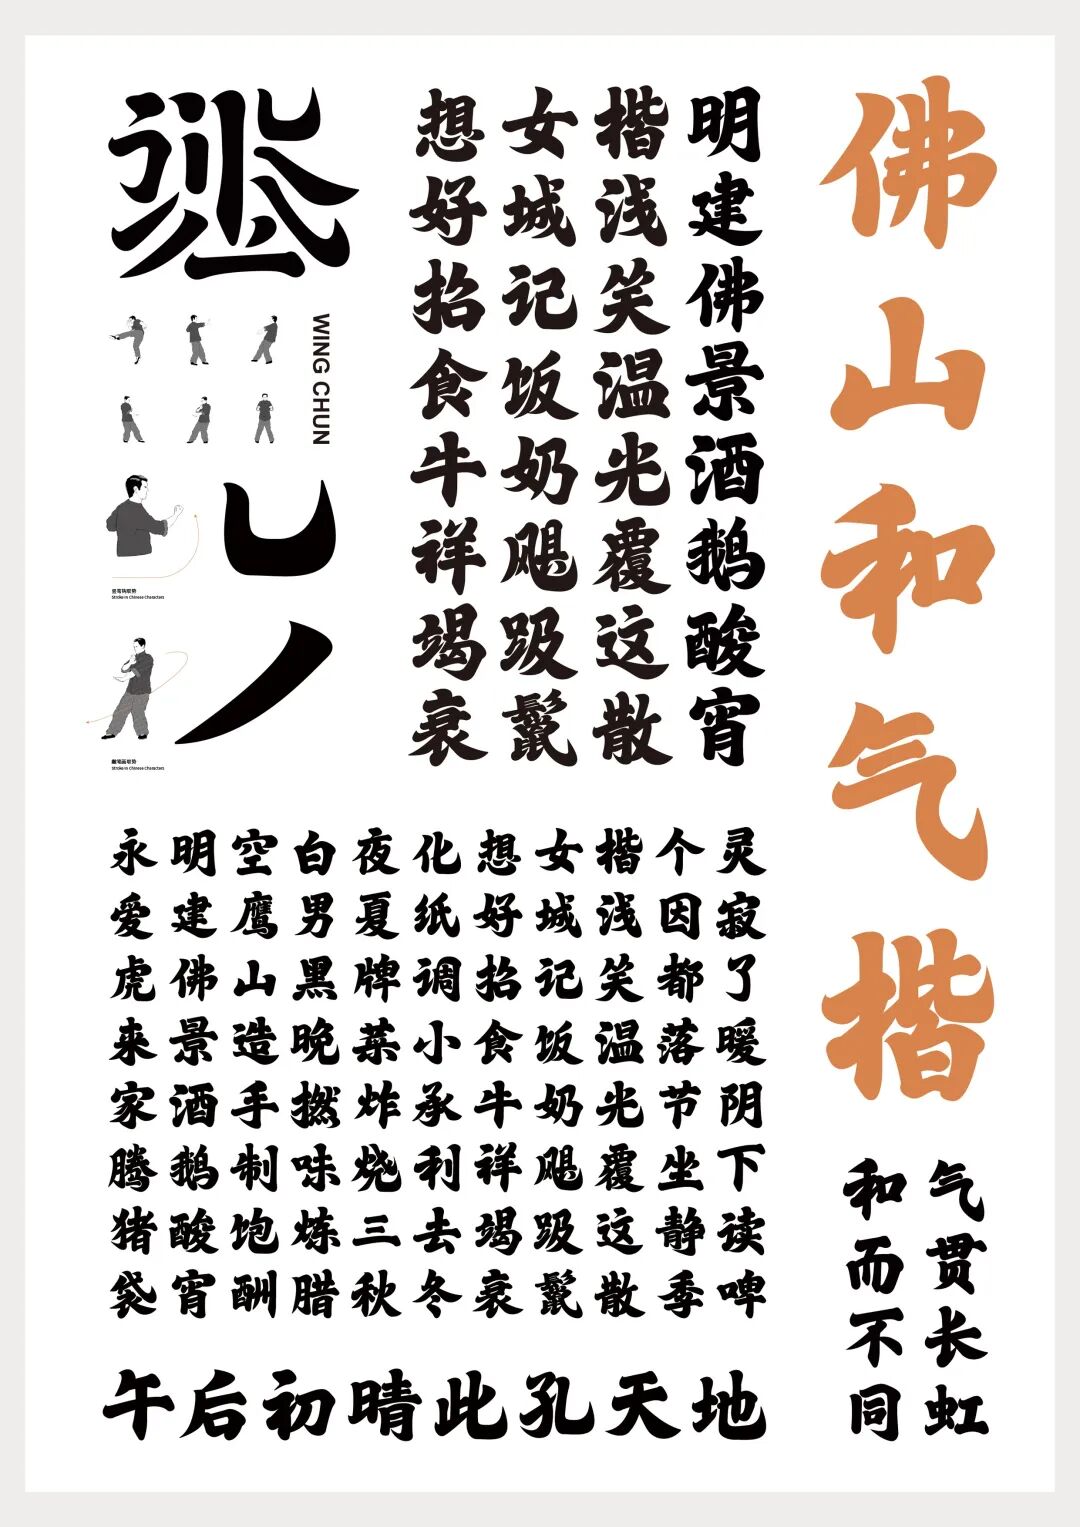 佛山和气楷
明建佛景酒鹅酸宵
楷浅笑温光覆这散
女城记饭奶飓趿鬣
想好招食牛祥竭衰
WING CHUN
竖弯钩取势
Stroke In Chinese Characters
撇笔画取势
Stroke In Chinese Characters
永明空白夜化想女楷个灵
爱建鹰男夏纸好城浅因寂
虎佛山黑牌调招记笑都了
来景造晚菜小食饭温落暖
家酒手撚炸承牛奶光节阴
腾鹅制味烧利祥飓覆坐下
猪酸饱炼三去竭趿这静读
袋宵酬腊秋冬衰鬣散季啤
午后初晴此孔天地
气贯长虹
和而不同